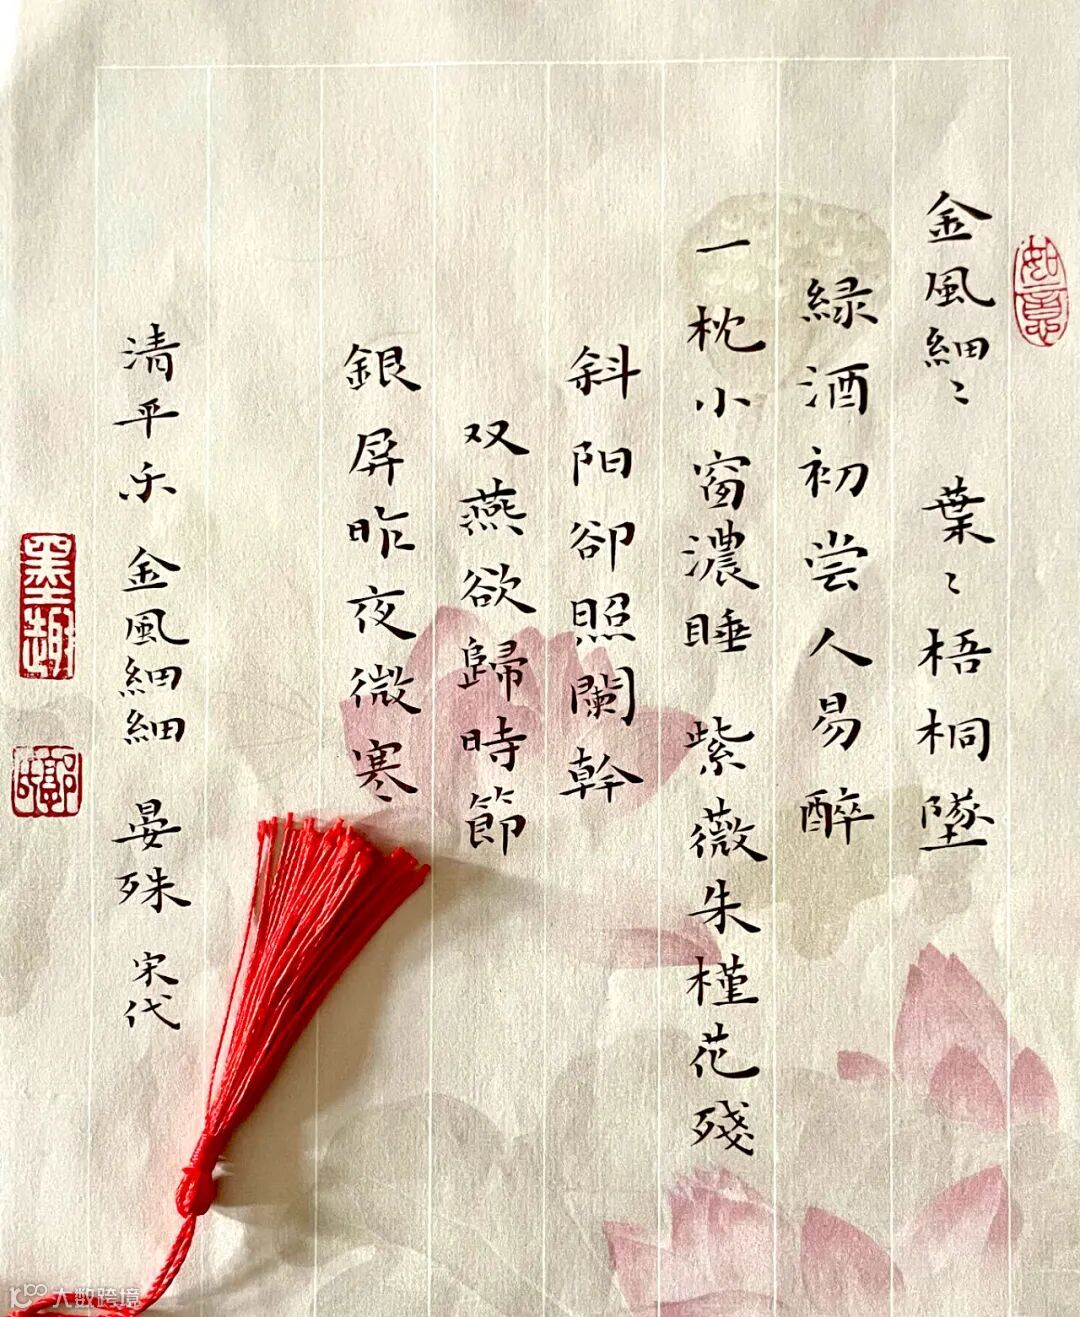 如意
金風細〻 葉〻梧桐墜
緑酒初尝人易醉
一枕小窗濃睡 紫薇朱槿花殘
斜阳卻照闌幹
双燕欲歸時節
銀屏昨夜微寒
清平乐 金風細細 晏殊 宋代
墨趣
大数跨境